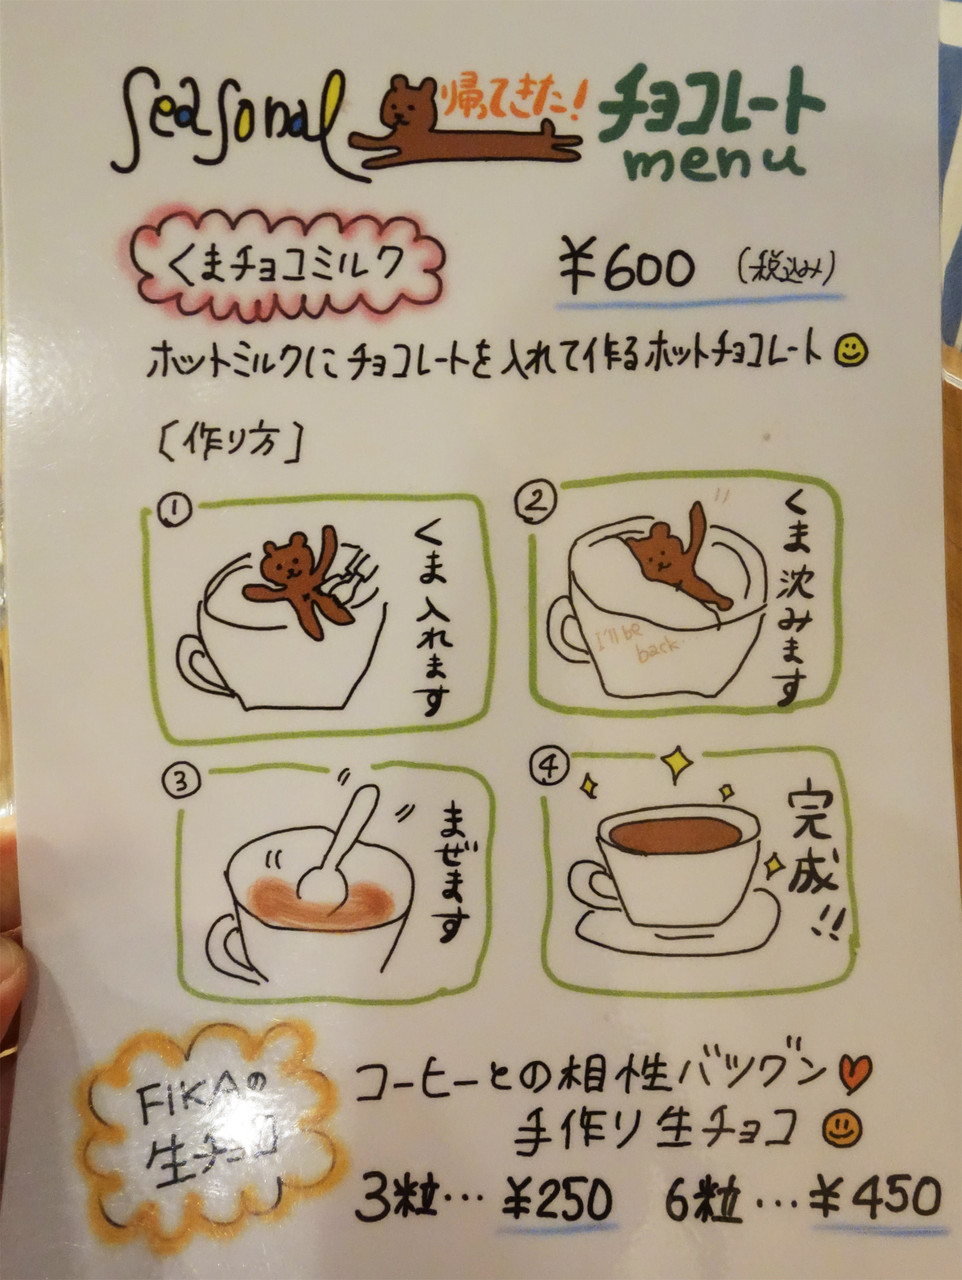 Seasonal 帰ってきた! チョコレート
menu
くまチョコミルク ¥600 (税込み)
ホットミルクにチョコレートを入れて作るホットチョコレート
[作り方]
①
くま入れます
②
くま沈みます
I'll be
back
③
まぜます
④
完成!!
FIKAの
生チョコ
コーヒーとの相性バツグン
手作り生チョコ
3粒… ¥250 6粒… ¥450